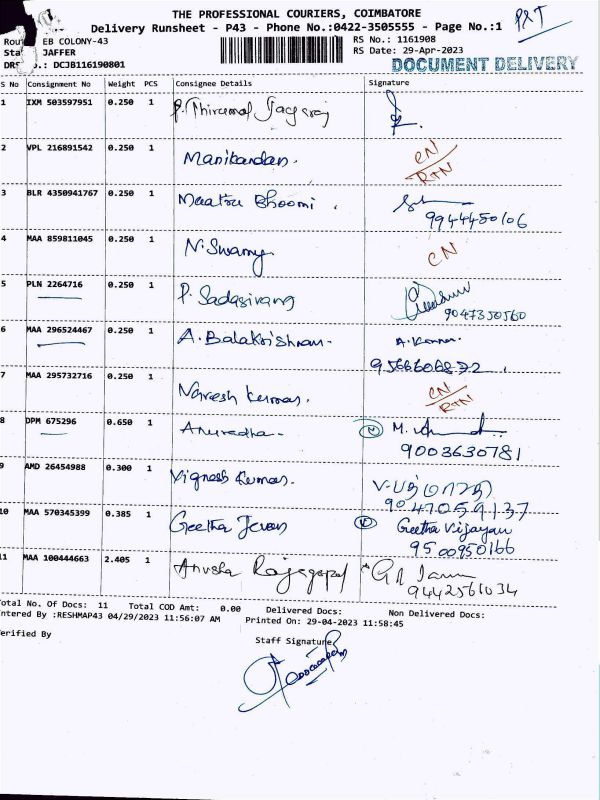 THE PROFESSIONAL COURIERS, COIMBATORE
Delivery Runsheet - P43 - Phone No.:0422-3505555 - Page No.:1
EB COLONY-43 RS No.: 1161908
JAFFER RS Date: 29-Apr-2023
DCJB1161190801 DOCUMENT DELIVERY
S No Consignment No Weight PCS Consignee Details Signature
1 IXM 503597951 0.250 1 P. Thirumal
2 VPL 216891542 0.250 1 Manikandan. CN/RTN
3 BLR 4350941767 0.250 1 Maatru Bhoomi.
9944450106
4 MAA 859811045 0.250 1 N. Swamy CN
5 PLN 2264716 0.250 1 P. Sadasivang
9047350560
6 MAA 296524467 0.250 1 A. Balakrishnan. A. Kannan.
9566606872.
7 MAA 295732716 0.250 1 Naresh Kumar. CN/RTN
8 DPM 675296 0.650 1 Anuradha M.
9003630781
9 AMD 26454988 0.300 1 Vignesh Kumar.
9047059137
10 MAA 570345399 0.385 1 Geetha Jevan Geetha Vijayan
9500950166
11 MAA 100444663 2.405 1 Anusha Rajagopal
9442561034
Total No. Of Docs: 11 Total COD Amt: 0.00 Delivered Docs: Non Delivered Docs:
Entered By :RESHMAP43 04/29/2023 11:56:07 AM Printed On: 29-04-2023 11:58:45
Verified By Staff Signature